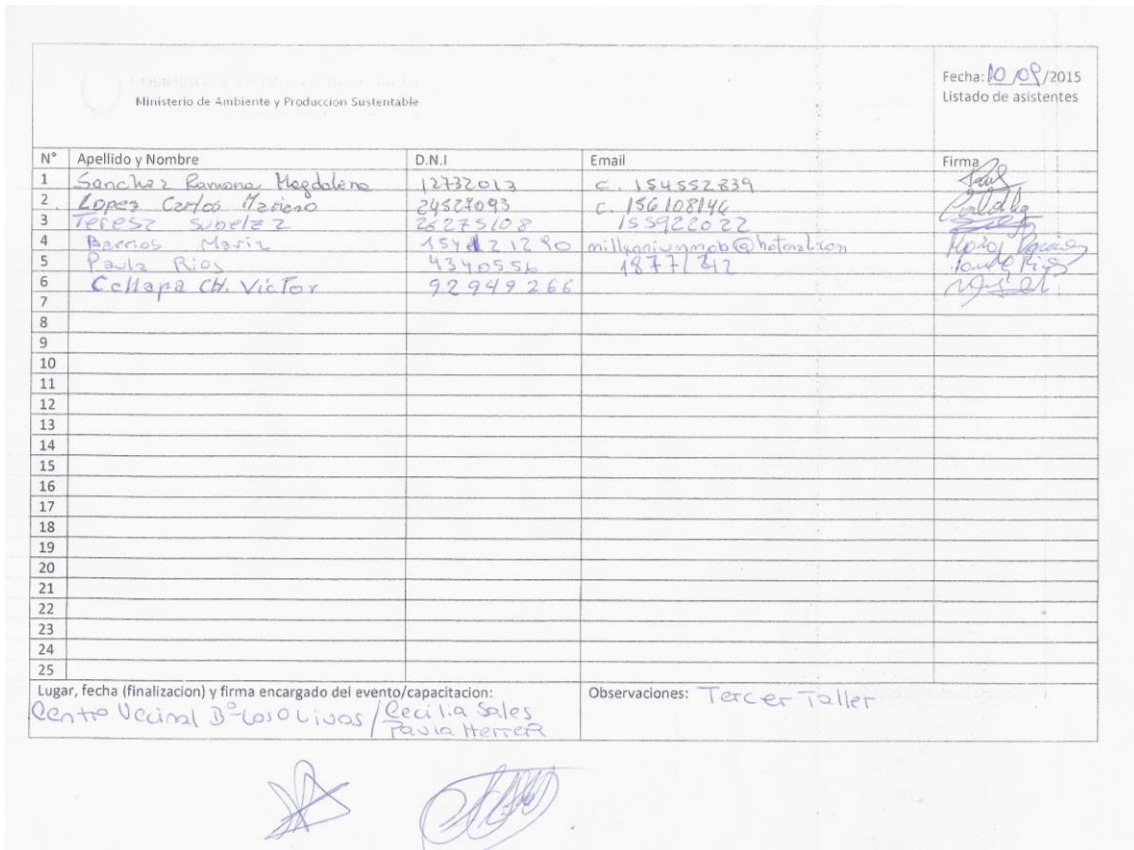 Ministerio de Ambiente y Produccion Sustentable
Fecha: 10/09/2015
Listado de asistentes
N° Apellido y Nombre D.N.I Email Firma
1 Sanchez Ramona Magdalena 12732013 c. 154552839
2 Lopez Carlos Mariano 24527093 c. 156108146
3 Teresa Subelza 26275108 155922022
4 Barrios Maria 154121290 millenniunmob@hotmail.com
5 Paula Rios 4340556 1877/212
6 Collapa CH. Victor 92949266
7
8
9
10
11
12
13
14
15
16
17
18
19
20
21
22
23
24
25
Lugar, fecha (finalizacion) y firma encargado del evento/capacitacion: Observaciones: Tercer Taller
Centro Vecinal B° Los Olivos / Cecilia Sales
Paula Herrera